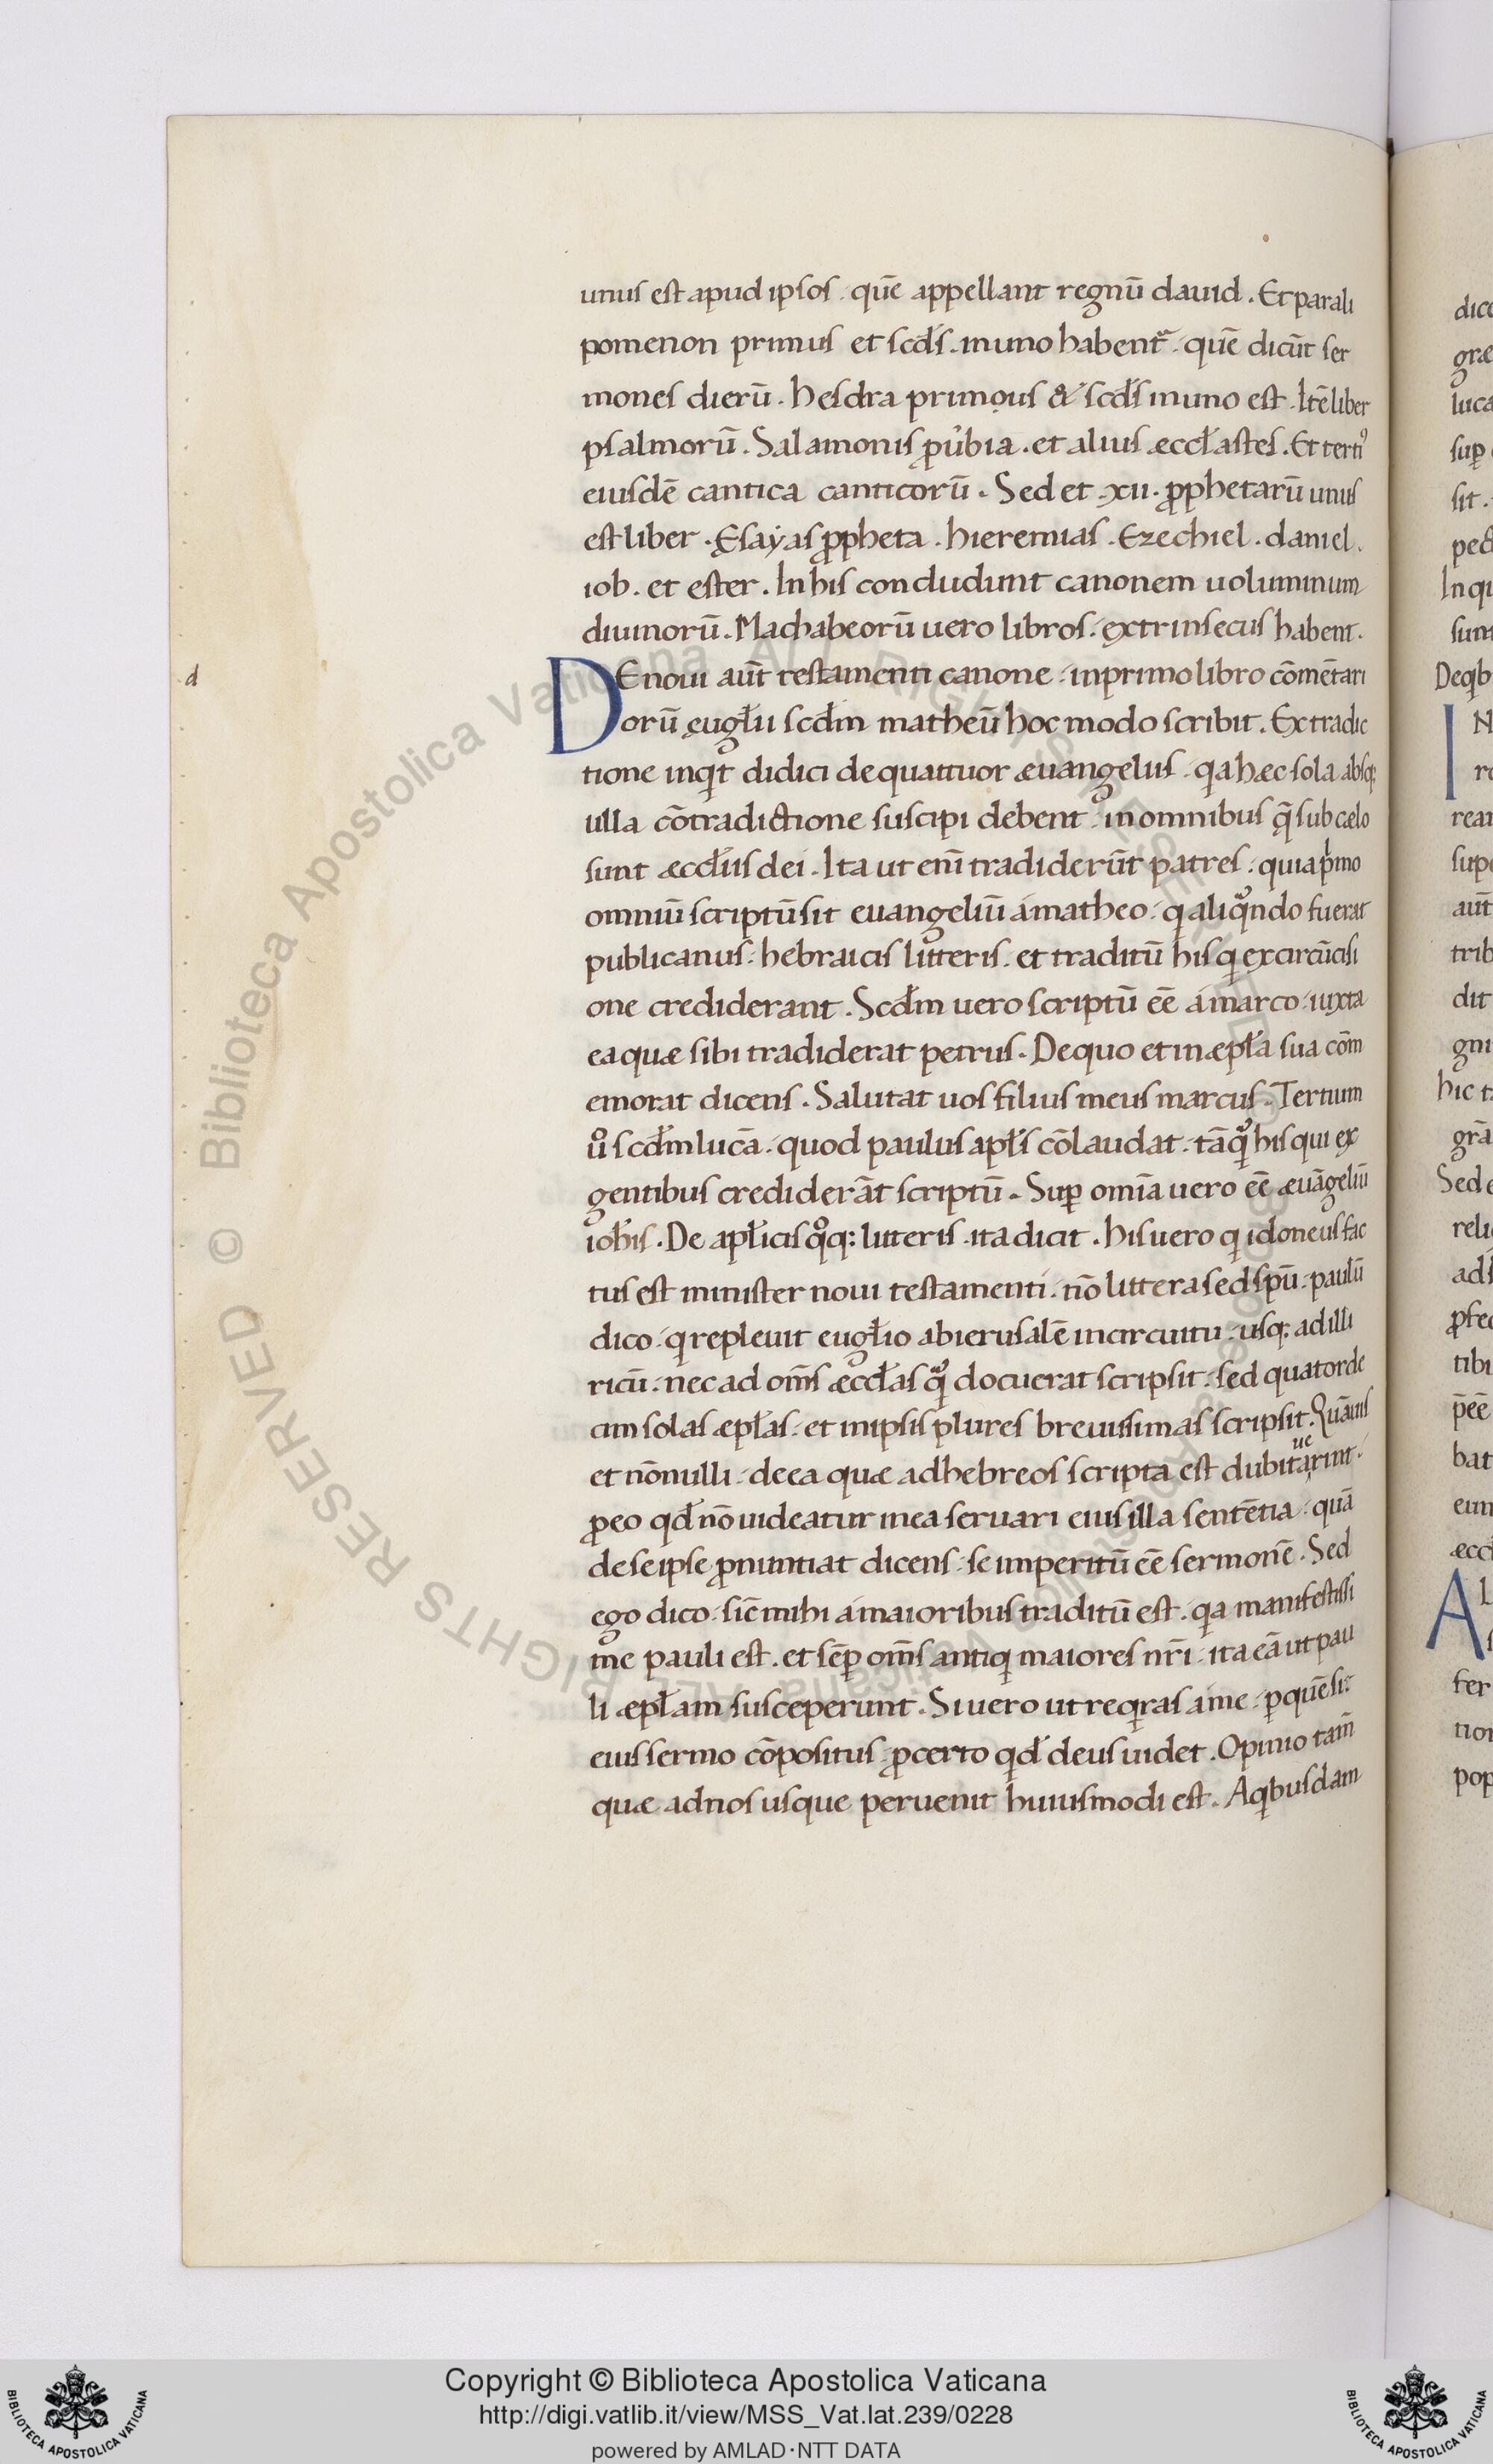 unus est apud ipsos. quē appellant regnū dauid. Et parali
pomenon primus et scđs. in uno habentᷓ. quē dicūt ser
mones dierū. hesdra primus & scđs in uno est. Itē liber
psalmorū. Salamonis ꝓu̓bia. et alius æccłastes. Et tertiꝰ
eiusdē cantica canticorū. Sed et .xii. ꝓphetarū unus
est liber. Ęsaẏas ꝓpheta. hieremias. Ezechiel. daniel.
iob. et ester. In his concludunt canonem uoluminum
diuinorū. Machabeorū uero libros. extrinsecus habent.
d
DE noui aūt testamenti canone. in primo libro cōmētari
orū ęugłii scđm matheū hoc modo scribit. Ex tradic
tione inqͥt didici de quattuor æuangeliis. qa hæc sola absqꝫ
ulla cōtradictione suscipi debent. in omnibus q̄ sub cælo
sunt æccłiis dei. Ita ut enī tradiderūt patres. quia pͥmo
omniū scriptū sit euangeliū á matheo. q aliqᷓndo fuerat
publicanus. hebraicis litteris. et traditū his q ex circūcisi
one crediderant. Scđm uero scriptū eē á marco. iuxta
ea quæ sibi tradiderat petrus. De quo et in æpła sua cōm
emorat dicens. Salutat uos filius meus marcus. Tertium
uͦ scđm lucā. quod paulus apłs cōlaudat. tāqᷓ his qui ex
gentibus crediderāt scriptū. Suꝑ omīa uero eē æuāgeliū
ioħis. De apłicis qͦqꝫ litteris. ita dicit. his uero q idoneus fac
tus est minister noui testamenti. nō littera sed spū. paulū
dico. q repleuit eugłio ab ierusalē in circuitu. usqꝫ ad illi
ricū. nec ad om̄s æccłas qᷓ docuerat scripsit. sed quatorde
cim solas æpłas. et in ipsis plures breuissimas scripsit. Quāuis
et nōnulli. de ea quæ ad hebreos scripta est dubitauerint.
ꝓ eo qđ nō uideatur in ea seruari eius illa sentētia. quā
de se ipse ꝓnuntiat dicens. se imperitū eē sermonē. Sed
ego dico. sic̄ mihi á maioribus traditū est. qa manifestissi
me pauli est. et sēꝑ om̄s antiq maiores nr̄i. ita eā ut pau
li æpłam susceperunt. Si uero ut reqͥras á me. ꝑ quē sit
eius sermo cōpositus. ꝓ certo qđ deus uidet. Opinio tam̄
quæ ad nos usque peruenit huiusmodi est. A qbusdam
Copyright © Biblioteca Apostolica Vaticana
http://digi.vatlib.it/view/MSS_Vat.lat.239/0228
powered by AMLAD·NTT DATA